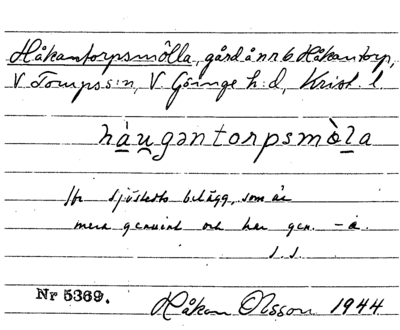 Håkantorpsmölla, gård å nr 6 Håkantorp,
V Torups s:n, V. Göinge h:d, Krist. l.
hàu̯gəntorpsmòla
Jfr Sjöstedts belägg, som är
mera genuint och har gen. -a.
Nr 5369. Håkan Olsson 1944